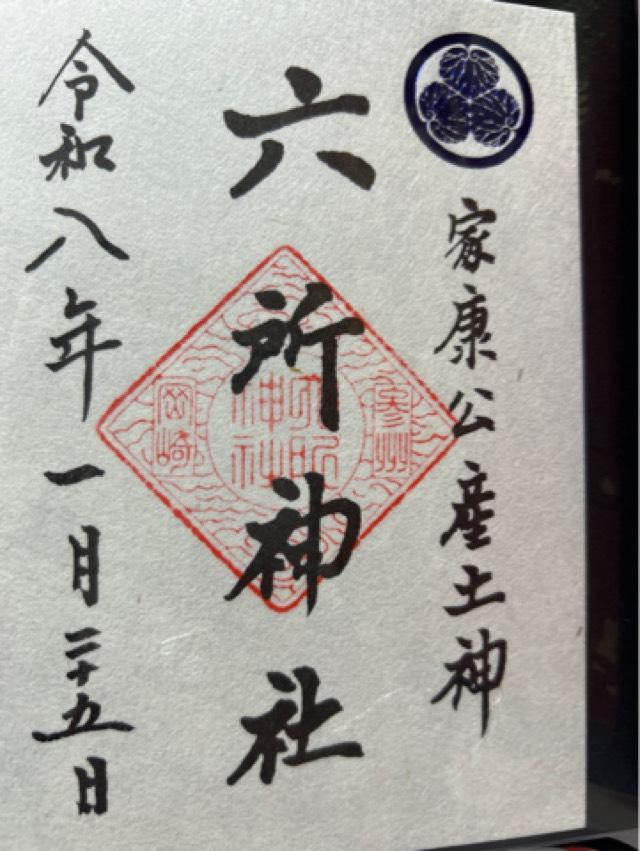 家康公産土神
六所神社
参州
六所
神社
岡崎
令和八年一月二十五日